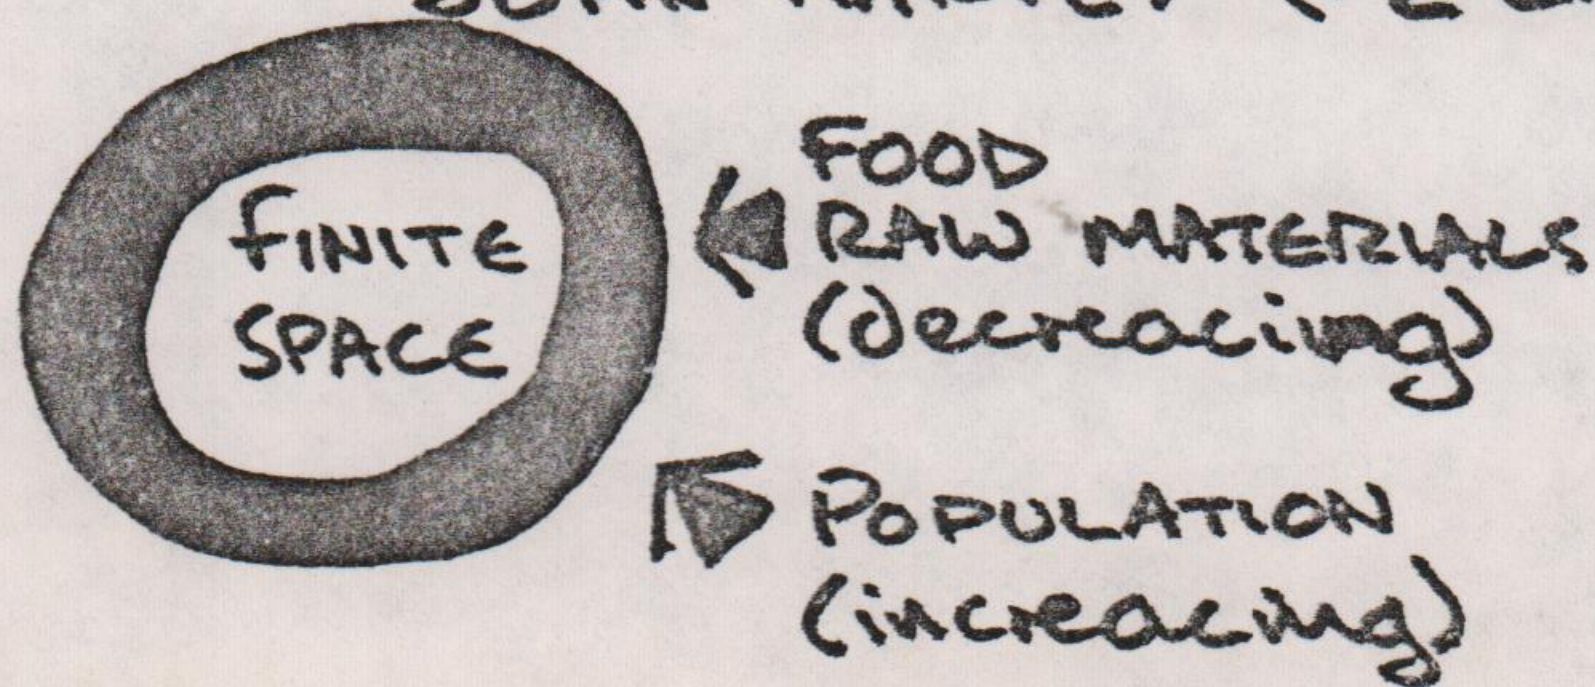 FINITE
SPACE
FOOD
RAW MATERIALS
(decreacing)
POPULATION
(increacing)